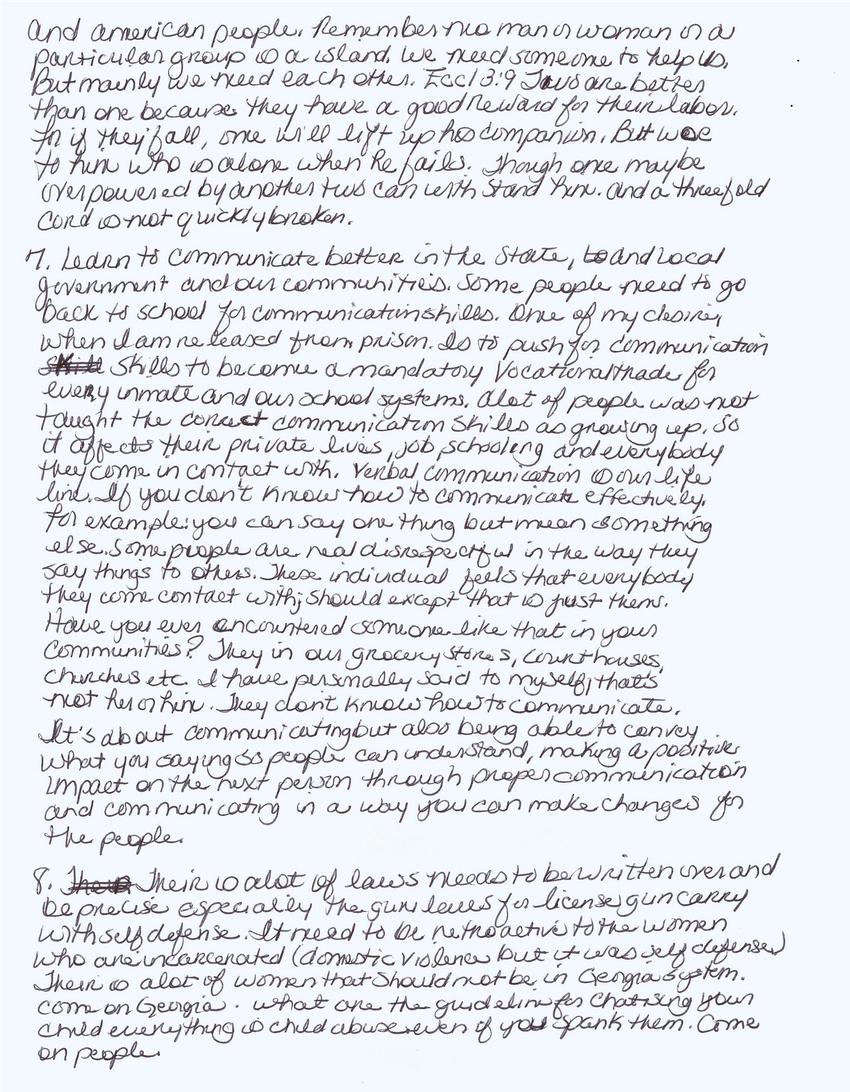 and american people. Remember no man or woman or a
particular group is a island. we need someone to help us.
But mainly we need each other. Eccl 3:9 Twos are better
than one because they have a good reward for their labor.
For if they fall, one will lift up his companion. But woe
to him who is alone when he falls. Though one maybe
overpowered by another two can withstand him. and a threefold
cord is not quickly broken.
7. Learn to communicate better in the State, to and Local
government and our communities. Some people need to go
back to school for communication skills. One of my desires,
when I am released from prison. Is to push for communication
Skill Skills to become a mandatory Vocational trade for
every inmate and our school systems. alot of people was not
taught the correct communication skills as growing up. So
it affects their private lives, job, schooling and everybody
they come in contact with. Verbal communication is our life
line. If you don't know how to communicate effectively.
For example: you can say one thing but mean something
else. Some people are real disrespectful in the way they
say things to others. These individual feels that everybody
they come contact with; should except that is just them.
Have you ever encountered someone like that in your
Communities? They in our grocery stores, court houses,
churches etc. I have personally said to myself, that's
not her or him. They don't know how to communicate.
It's about communicating but also being able to convey
what you saying so people can understand, making a positive
impact on the next person through proper communication
and communicating in a way you can make changes for
the people.
8. Their is alot of laws needs to be written over and
be precise especially the gun laws for license gun carry
with self defense. It need to be retroactive to the women
who are incarcerated (domestic violence but it was self defense)
Their is alot of women that should not be in Georgia system.
come on Georgia. what are the guideline for chastising your
child everything is child abuse even if you spank them. Come
on people.